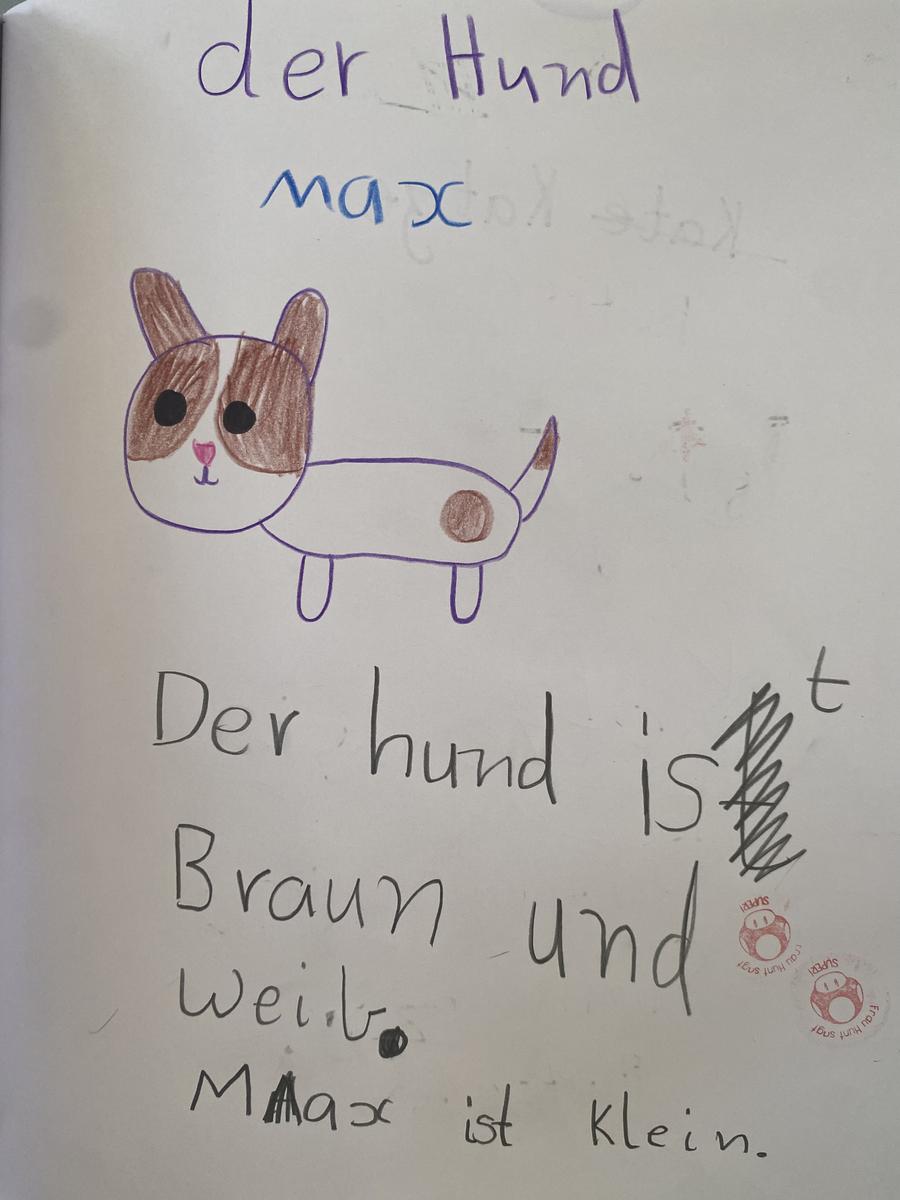 der Hund
max
Der hund ist
Braun und
weiß.
Max ist Klein.
SUPER!
Frau Hunt sagt
SUPER!
Frau Hunt sagt